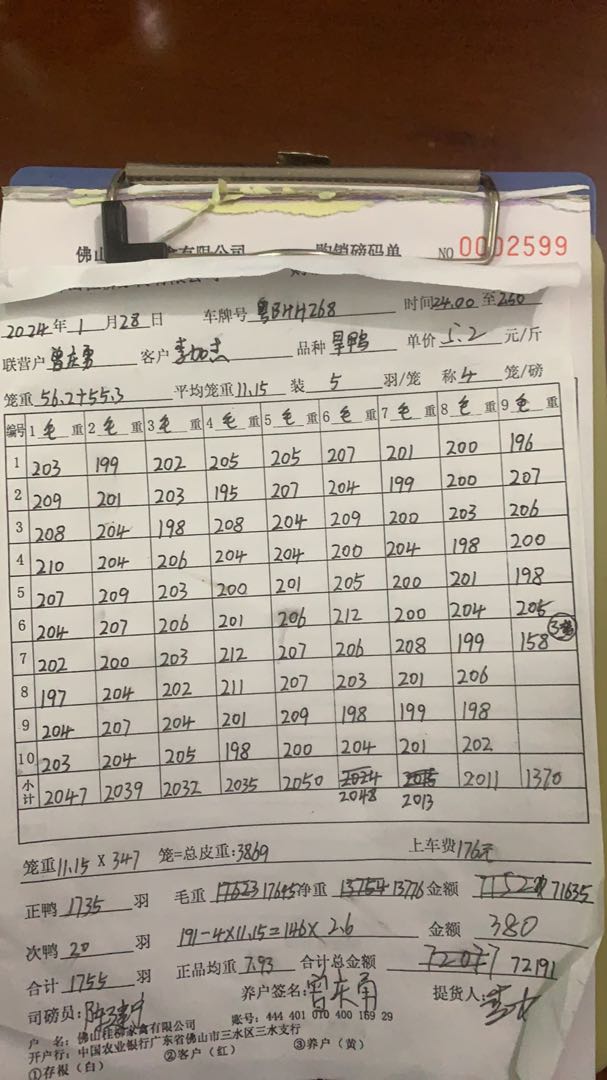 有限公司 购销磅码单 NO 0002599
2024年 1 月 28 日 车牌号 粤BHH268 时间24.00 至250
联营户 曾庆勇 客户 品种 旱鸭 单价 5.2 元/斤
笼重 56.2+55.3 平均笼重11.15 装 5 羽/笼 称 4 笼/磅
编号 1 毛 重 2 毛 重 3 毛 重 4 毛 重 5 毛 重 6 毛 重 7 毛 重 8 毛 重 9 毛 重
1 203 199 202 205 205 207 201 200 196
2 209 201 203 195 207 204 199 200 207
3 208 204 198 208 204 209 200 203 206
4 210 204 206 204 204 200 204 198 200
5 207 209 203 200 201 205 200 201 198
6 204 207 206 201 206 212 200 204 205
7 202 200 203 212 207 206 208 199 158 3笼
8 197 204 202 211 207 203 201 206
9 204 207 204 201 209 198 199 198
10 203 204 205 198 200 204 201 202
小计 2047 2039 2032 2035 2050 2024 2015 2011 1370
2048 2013
笼重11.15 × 347 笼=总皮重:3869 上车费176元
正鸭 1735 羽 毛重 17623 17645 净重 13754 13776 金额 71635
次鸭 20 羽 191-4×11.15=146× 2.6 金额 380
合计 1755 羽 正品均重 7.93 合计总金额 72077 72191
司磅员: 养户签名: 曾庆勇 提货人:
户 名: 佛山桂柳家禽有限公司 账号: 444 401 010 400 169 29
开户行: 中国农业银行广东省佛山市三水区三水支行
①存根(白) ②客户(红) ③养户(黄)